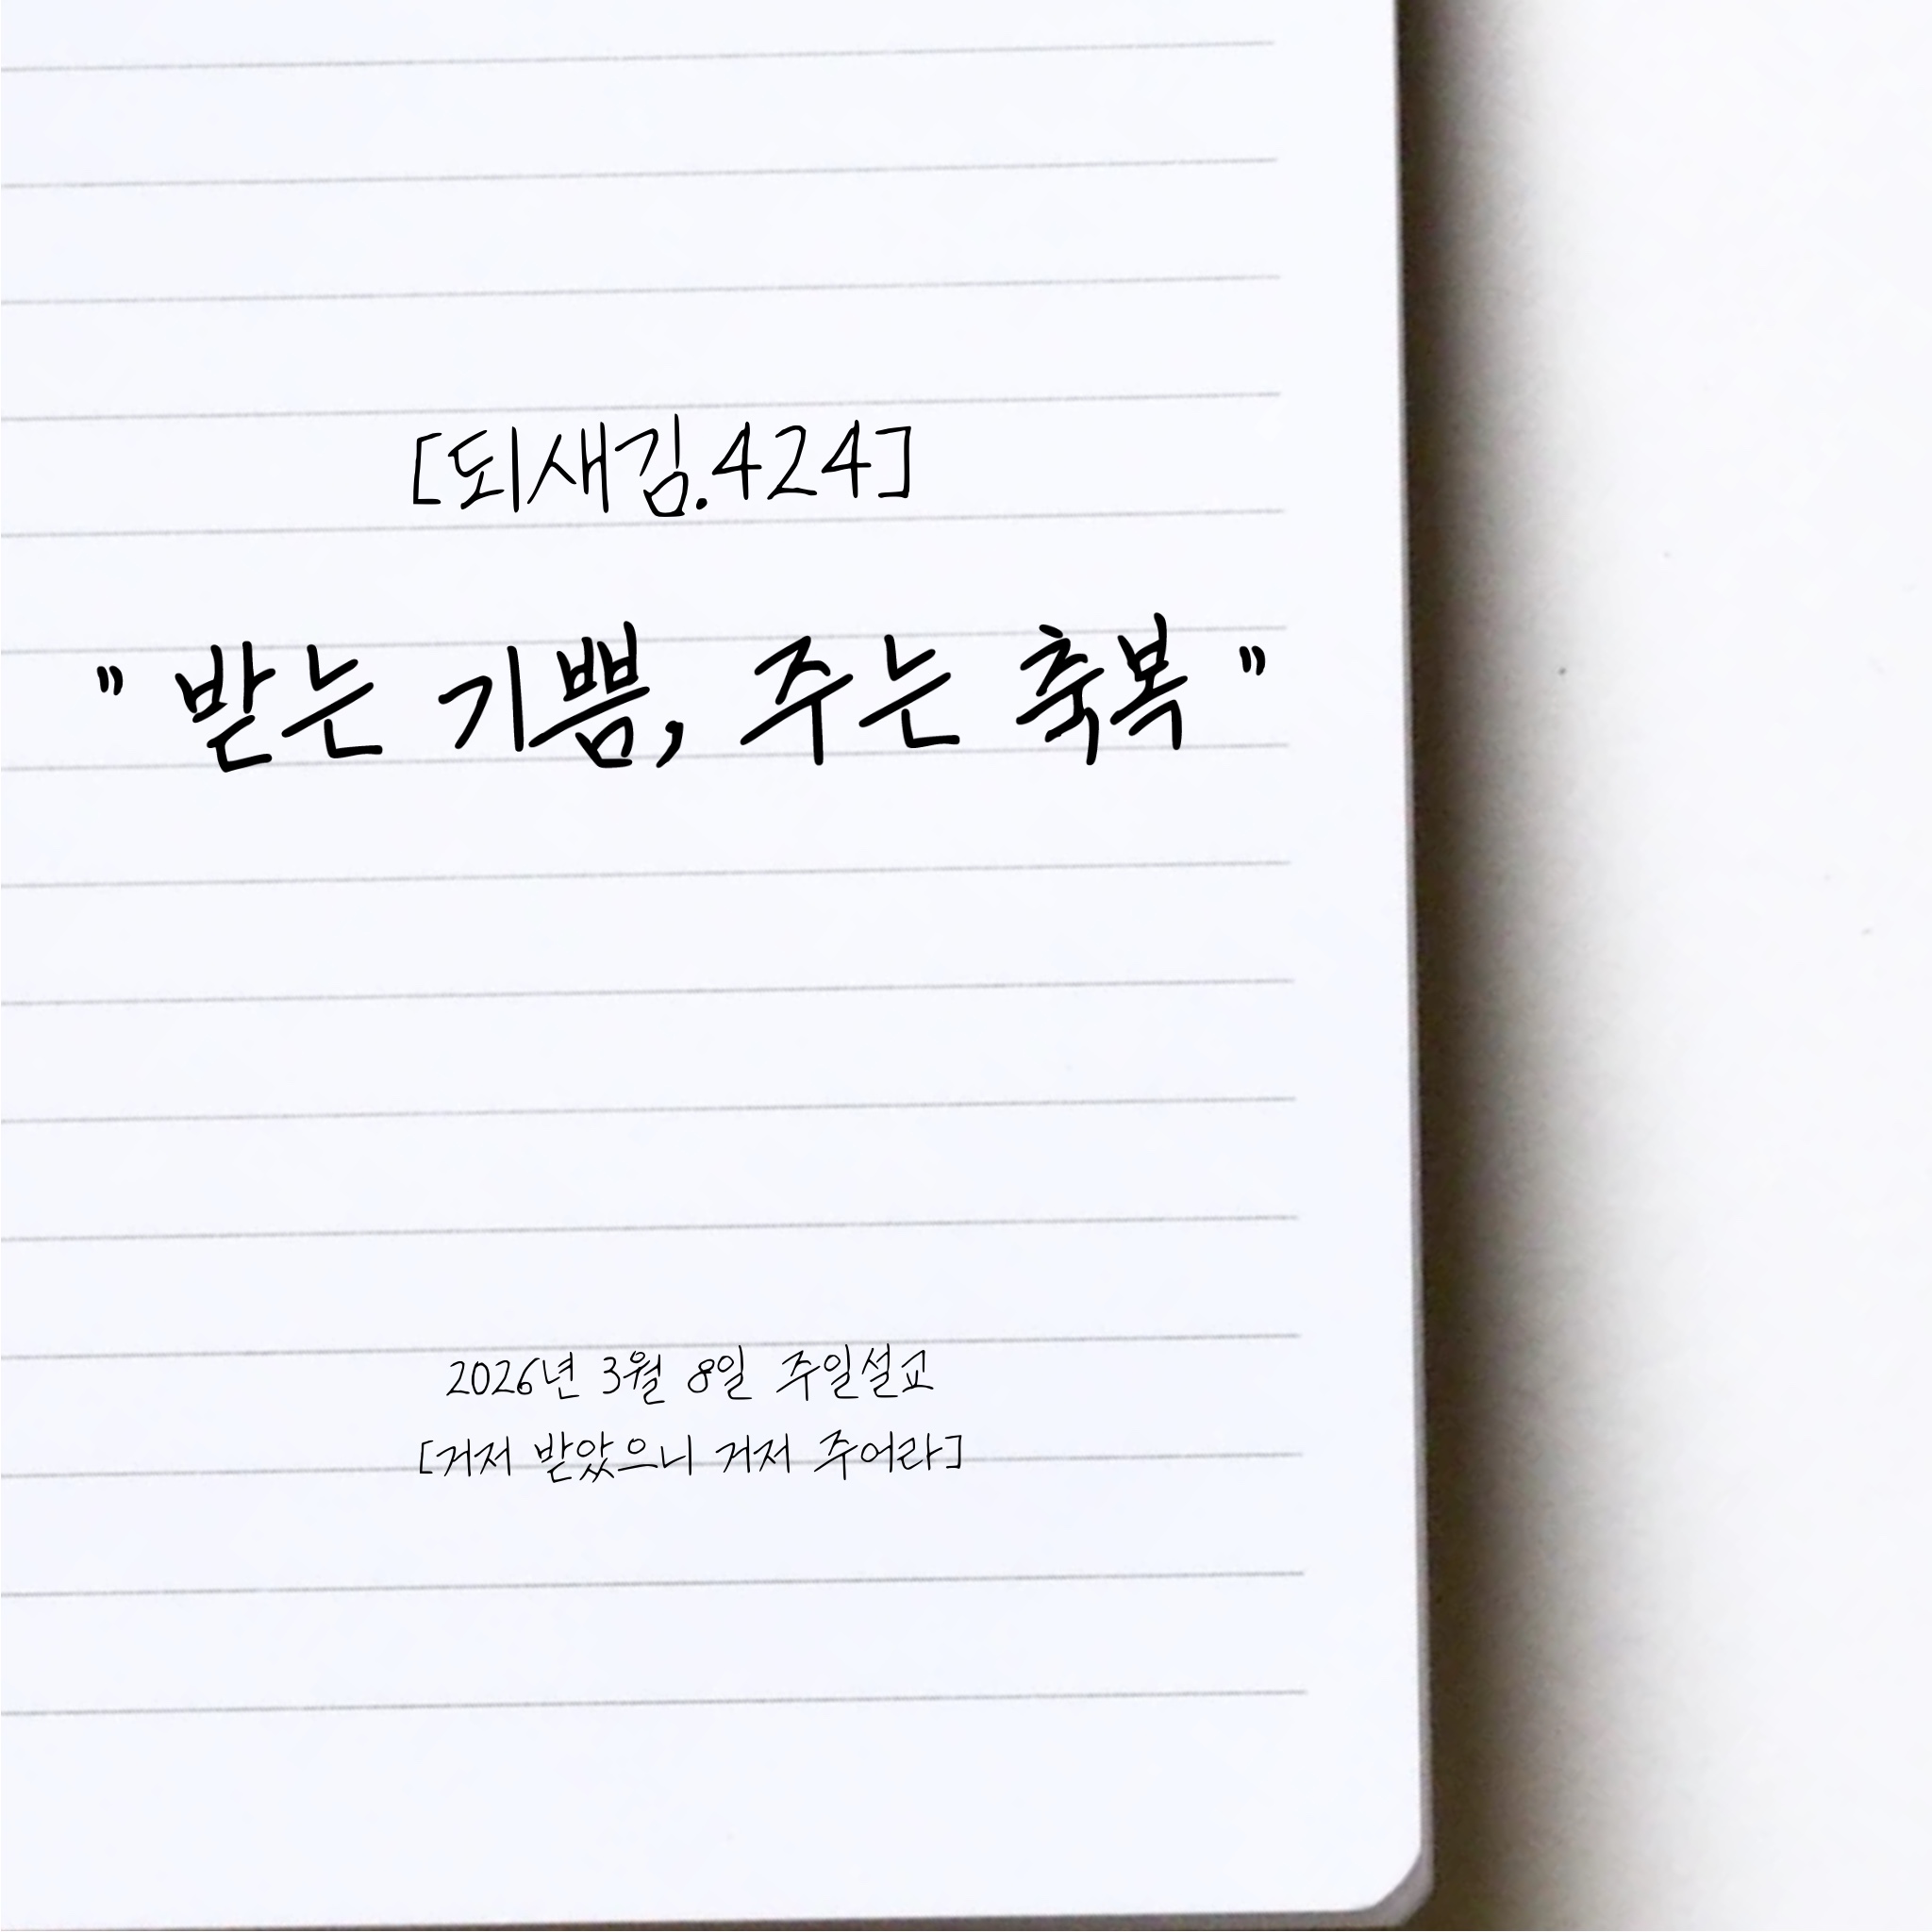 [되새김.424]
" 받는 기쁨, 주는 축복 "
2026년 3월 8일 주일설교
[거저 받았으니 거저 주어라]